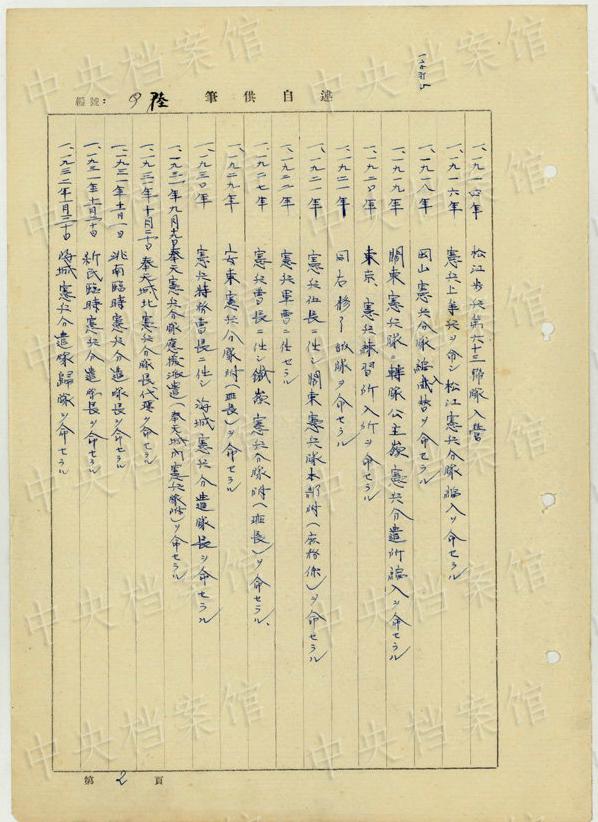 述自供筆
編號：
一、一九一四年 松江步兵第六十三聯隊入營
一、一九一六年 憲兵上等兵ヲ命シ松江憲兵分隊編入ヲ命セラル
一、一九一八年 岡山憲兵分隊ヲ命セラル
一、一九一九年 関東憲兵隊ニ轉隊公主嶺憲兵分遣所編入ヲ命セラル
一、一九二〇年 東京、憲兵練習所入所ヲ命セラル
一、一九二一年 同右 ヲ命セラル
一、一九二一年 憲兵伍長ニ任シ関東憲兵隊本部附（庶務係）ヲ命セラル
一、一九二二年 憲兵軍曹ニ任セラル
一、一九二七年 憲兵曹長ニ任シ鐵嶺憲兵分隊附（班長）ヲ命セラル、
一、一九二九年 安東憲兵分隊附（班長）ヲ命セラル
一、一九三〇年 憲兵特務曹長ニ任シ海城憲兵分遣隊長ヲ命セラル
一、一九三一年九月 日 奉天憲兵分隊應援派遣（奉天城内憲兵隊附）ヲ命セラル
一、一九三一年十月二十日 奉天城北憲兵分隊長代理ヲ命セラル
一、一九三一年十一月一日 洮南臨時憲兵分遣隊長ヲ命セラル
一、一九三一年 月二十日 新民臨時憲兵分遣隊長ヲ命セラル
一、一九三二年一月三十日 海城憲兵分遣隊歸隊ヲ命セラル
第 2 頁
中央档案馆